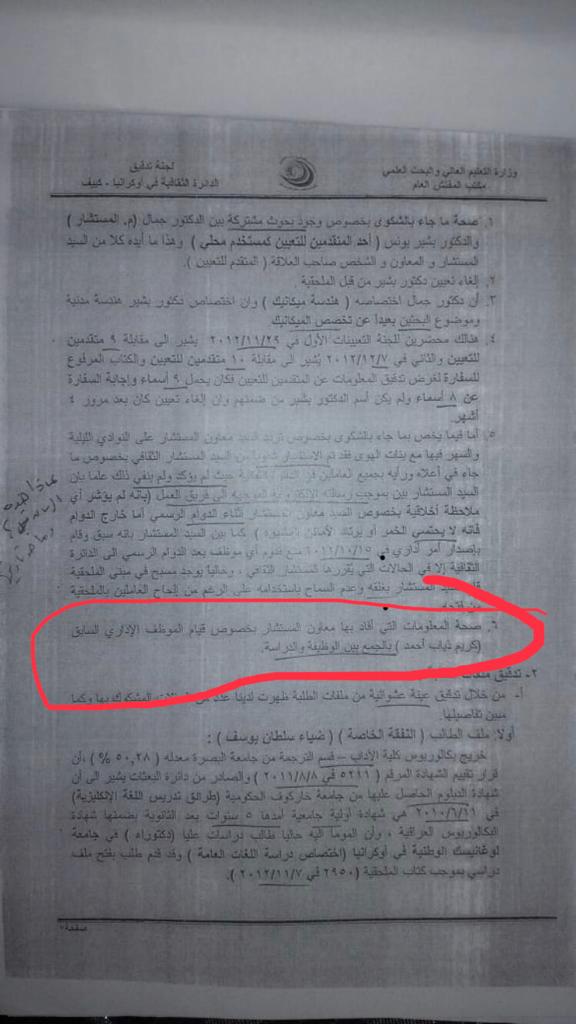 وزارة التعليم العالي والبحث العلمي
مكتب المفتش العام
لجنة تدقيق
الدائرة الثقافية في أوكرانيا - كييف
١. صحة ما جاء بالشكوى بخصوص وجود بحوث مشتركة بين الدكتور جمال (م. المستشار )
والدكتور بشير يونس ( أحد المتقدمين للتعيين كمستخدم محلي ) وهذا ما أيده كلا من السيد
المستشار و المعاون و الشخص صاحب العلاقة ( المتقدم للتعيين ).
٢. إلغاء تعيين دكتور بشير من قبل الملحقية .
٣. أن دكتور جمال اختصاصه ( هندسة ميكانيك ) وان اختصاص دكتور بشير هندسة مدنية
وموضوع البحثين بعيداً عن تخصص الميكانيك.
٤. هنالك محضرين للجنة التعيينات الأول في ٢٠١٢/١١/٢٩ يشير الى مقابلة ٩ متقدمين
للتعيين والثاني في ٢٠١٢/١٢/٧ يُشير الى مقابلة ١٠ متقدمين للتعيين والكتاب المرفوع
للسفارة لغرض تدقيق المعلومات عن المتقدمين للتعيين فكان يحمل ٩ أسماء وإجابة السفارة
عن ٨ أسماء ولم يكن أسم الدكتور بشير من ضمنهم وان إلغاء تعيين كان بعد مرور ٤
أشهر.
٥. أما فيما يخص بما جاء بالشكوى بخصوص تردد السيد معاون المستشار على النوادي الليلية
والسهر فيها مع بنات الهوى فقد تم الاستفسار من السيد المستشار الثقافي بخصوص ما
جاء في أعلاه ورأيه بجميع العاملين حيث لم يؤكد ولم ينفي ذلك علما بان
السيد المستشار بين بموجب رسالته الموجهه الى فريق العمل (بأنه لم يؤشر أي
ملاحظة أخلاقية بخصوص السيد معاون المستشار أثناء الدوام الرسمي أما خارج الدوام
فانه لا يحتسي الخمر أو يرتاد الأماكن ) كما بين السيد المستشار بانه سبق وقام
بإصدار أمر أداري في ٢٠١١/١٠/١٥ منع قدوم أي موظف بعد الدوام الرسمي الى الدائرة
الثقافية إلا في الحالات التي يقررها المستشار الثقافي ، وحالياً يوجد مسبح في مبنى الملحقية
المستشار بغلقه وعدم السماح باستخدامه على الرغم من إلحاح العاملين بالملحقية
من فتحه
٦. صحة المعلومات التي أفاد بها معاون المستشار بخصوص قيام الموظف الإداري السابق
(كريم ذياب أحمد ) بالجمع بين الوظيفة والدراسة.
٢- تدقيق
أ- من خلال تدقيق عينة عشوائية من ملفات الطلبة ظهرت لدينا عدد من المشكوك بها وكما
مبين تفاصيلها.
أولا: ملف الطالب ( النفقة الخاصة ) ( ضياء سلطان يوسف ) :
خريج بكالوريوس كلية الأداب – قسم الترجمة من جامعة البصرة معدله ( ٥٠,٢٨ %) ،أن
قرار تقييم الشهادة المرقم ( ٥٢١١ في ٢٠١١/٨/٨ ) والصادر من دائرة البعثات يشير الى أن
شهادة الدبلوم الحاصل عليها من جامعة خاركوف الحكومية (طرائق تدريس اللغة الانكليزية)
في ٢٠١٠/٦/١١ هي شهادة أولية جامعية أمدها ٥ سنوات بعد الثانوية بضمنها شهادة
البكالوريوس العراقية ، وأن المومأ اليه حاليا طالب دراسات عليا (دكتوراه ) في جامعة
لوغانيسك الوطنية في أوكرانيا (اختصاص دراسة اللغات العامة ) وقد قدم طلب بفتح ملف
دراسي بموجب كتاب الملحقية ( ٢٩٥٠ في ٢٠١٢/١١/٧ ).